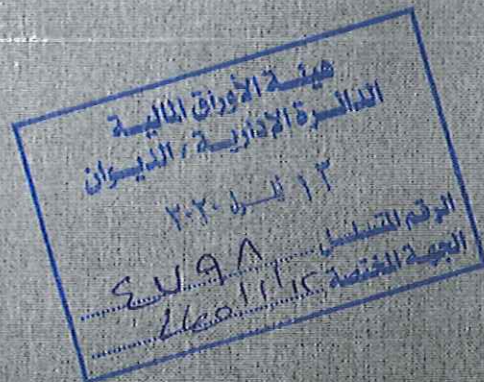 هيئة الأوراق المالية
الدائرة الإدارية / الديوان
١٣ أيلول ٢٠٢٠
الرقم المتسلسل ٤٧٩٨
الجهة المختصة